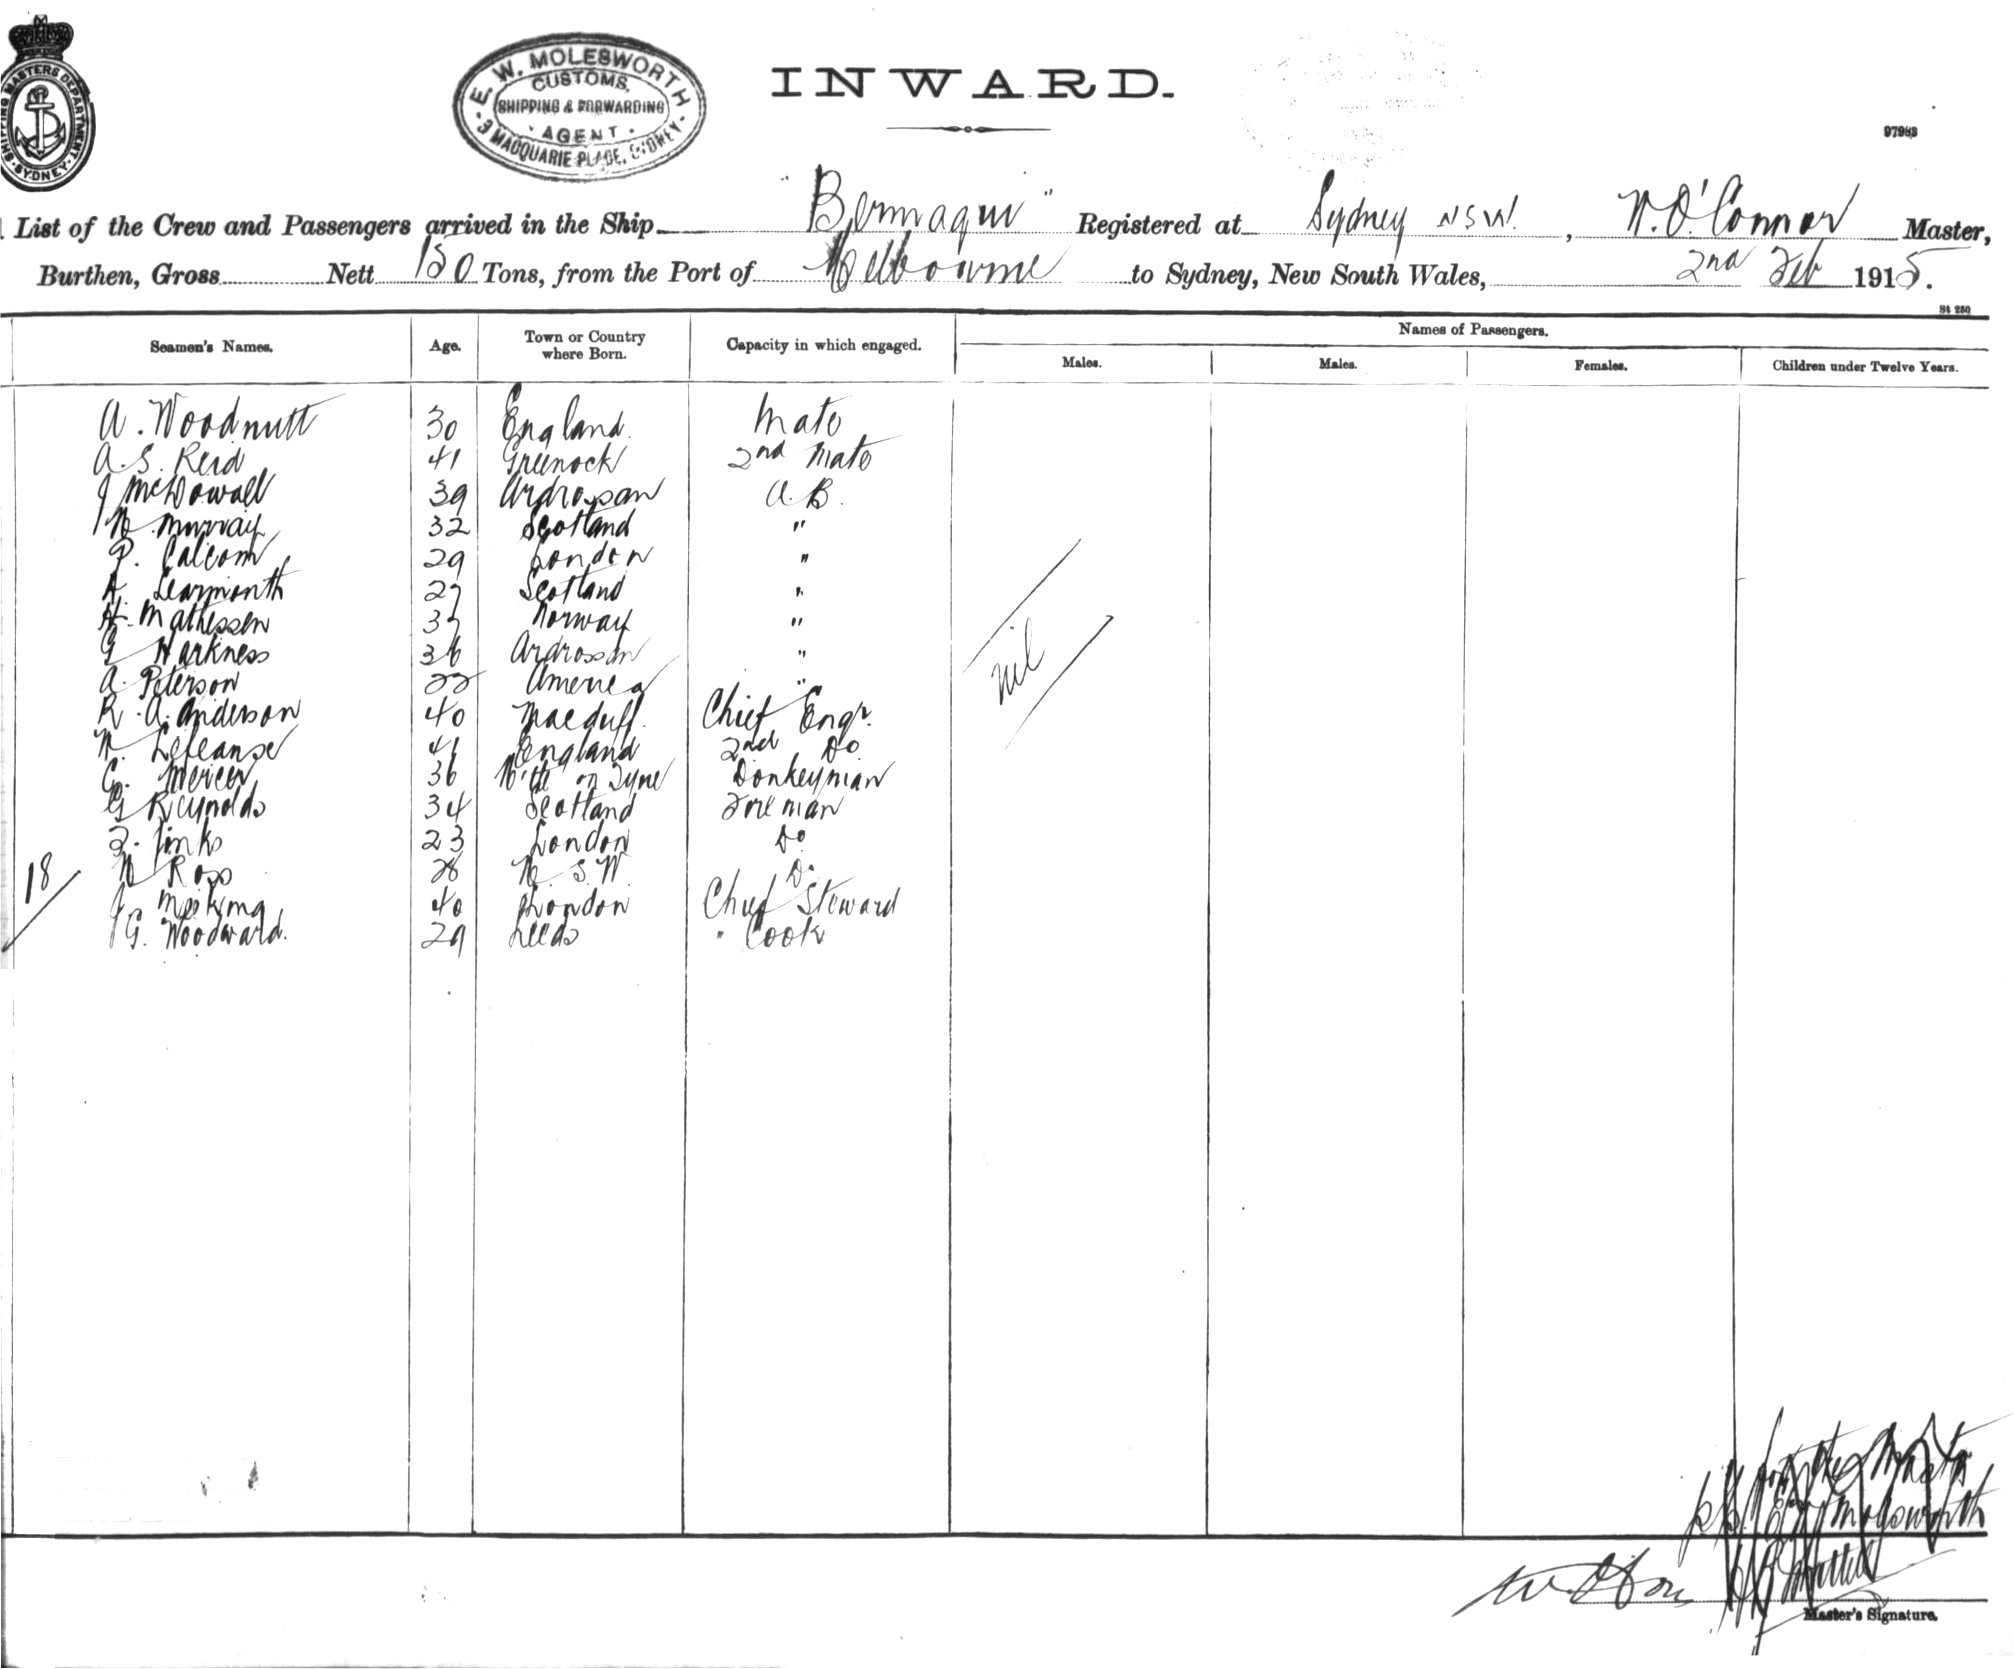 SHIPPING MASTERS DEPARTMENT. SYDNEY
E. W. MOLESWORTH
CUSTOMS,
SHIPPING & FORWARDING
AGENT
3 MACQUARIE PLACE, SYDNEY
INWARD.
97983
List of the Crew and Passengers arrived in the Ship "Bermagui" Registered at Sydney NSW. , W. O'Connor Master,
Burthen, Gross Nett 150 Tons, from the Port of Melbourne to Sydney, New South Wales, 2nd Feb 1915.
St 250
Seamen's Names. Age. Town or Country where Born. Capacity in which engaged. Names of Passengers.
Males. Males. Females. Children under Twelve Years.
A. Woodnutt 30 England. Mate
A. S. Reid 41 Greenock 2nd Mate
J McDowall 39 Ardrossan A.B.
N. Murray 32 Scotland "
P. Calcom 29 London "
A. Learmonth 27 Scotland "
H. Mathessen 37 Norway "
G Harkness 36 Ardrossan "
A. Peterson 22 America "
R. A. Anderson 40 Macduff. Chief Engr.
41 England 2nd Do
C. Mercer 36 N'tle on Tyne Donkeyman
G Reynolds 34 Scotland Fireman
Jinks 23 London Do
N Ross 28 N. S. W Do
J Meeking 40 London Chief Steward
G. Woodward. 29 Leeds " Cook
nil
18
for the Master
p.p. E. W. Molesworth
Master's Signature.